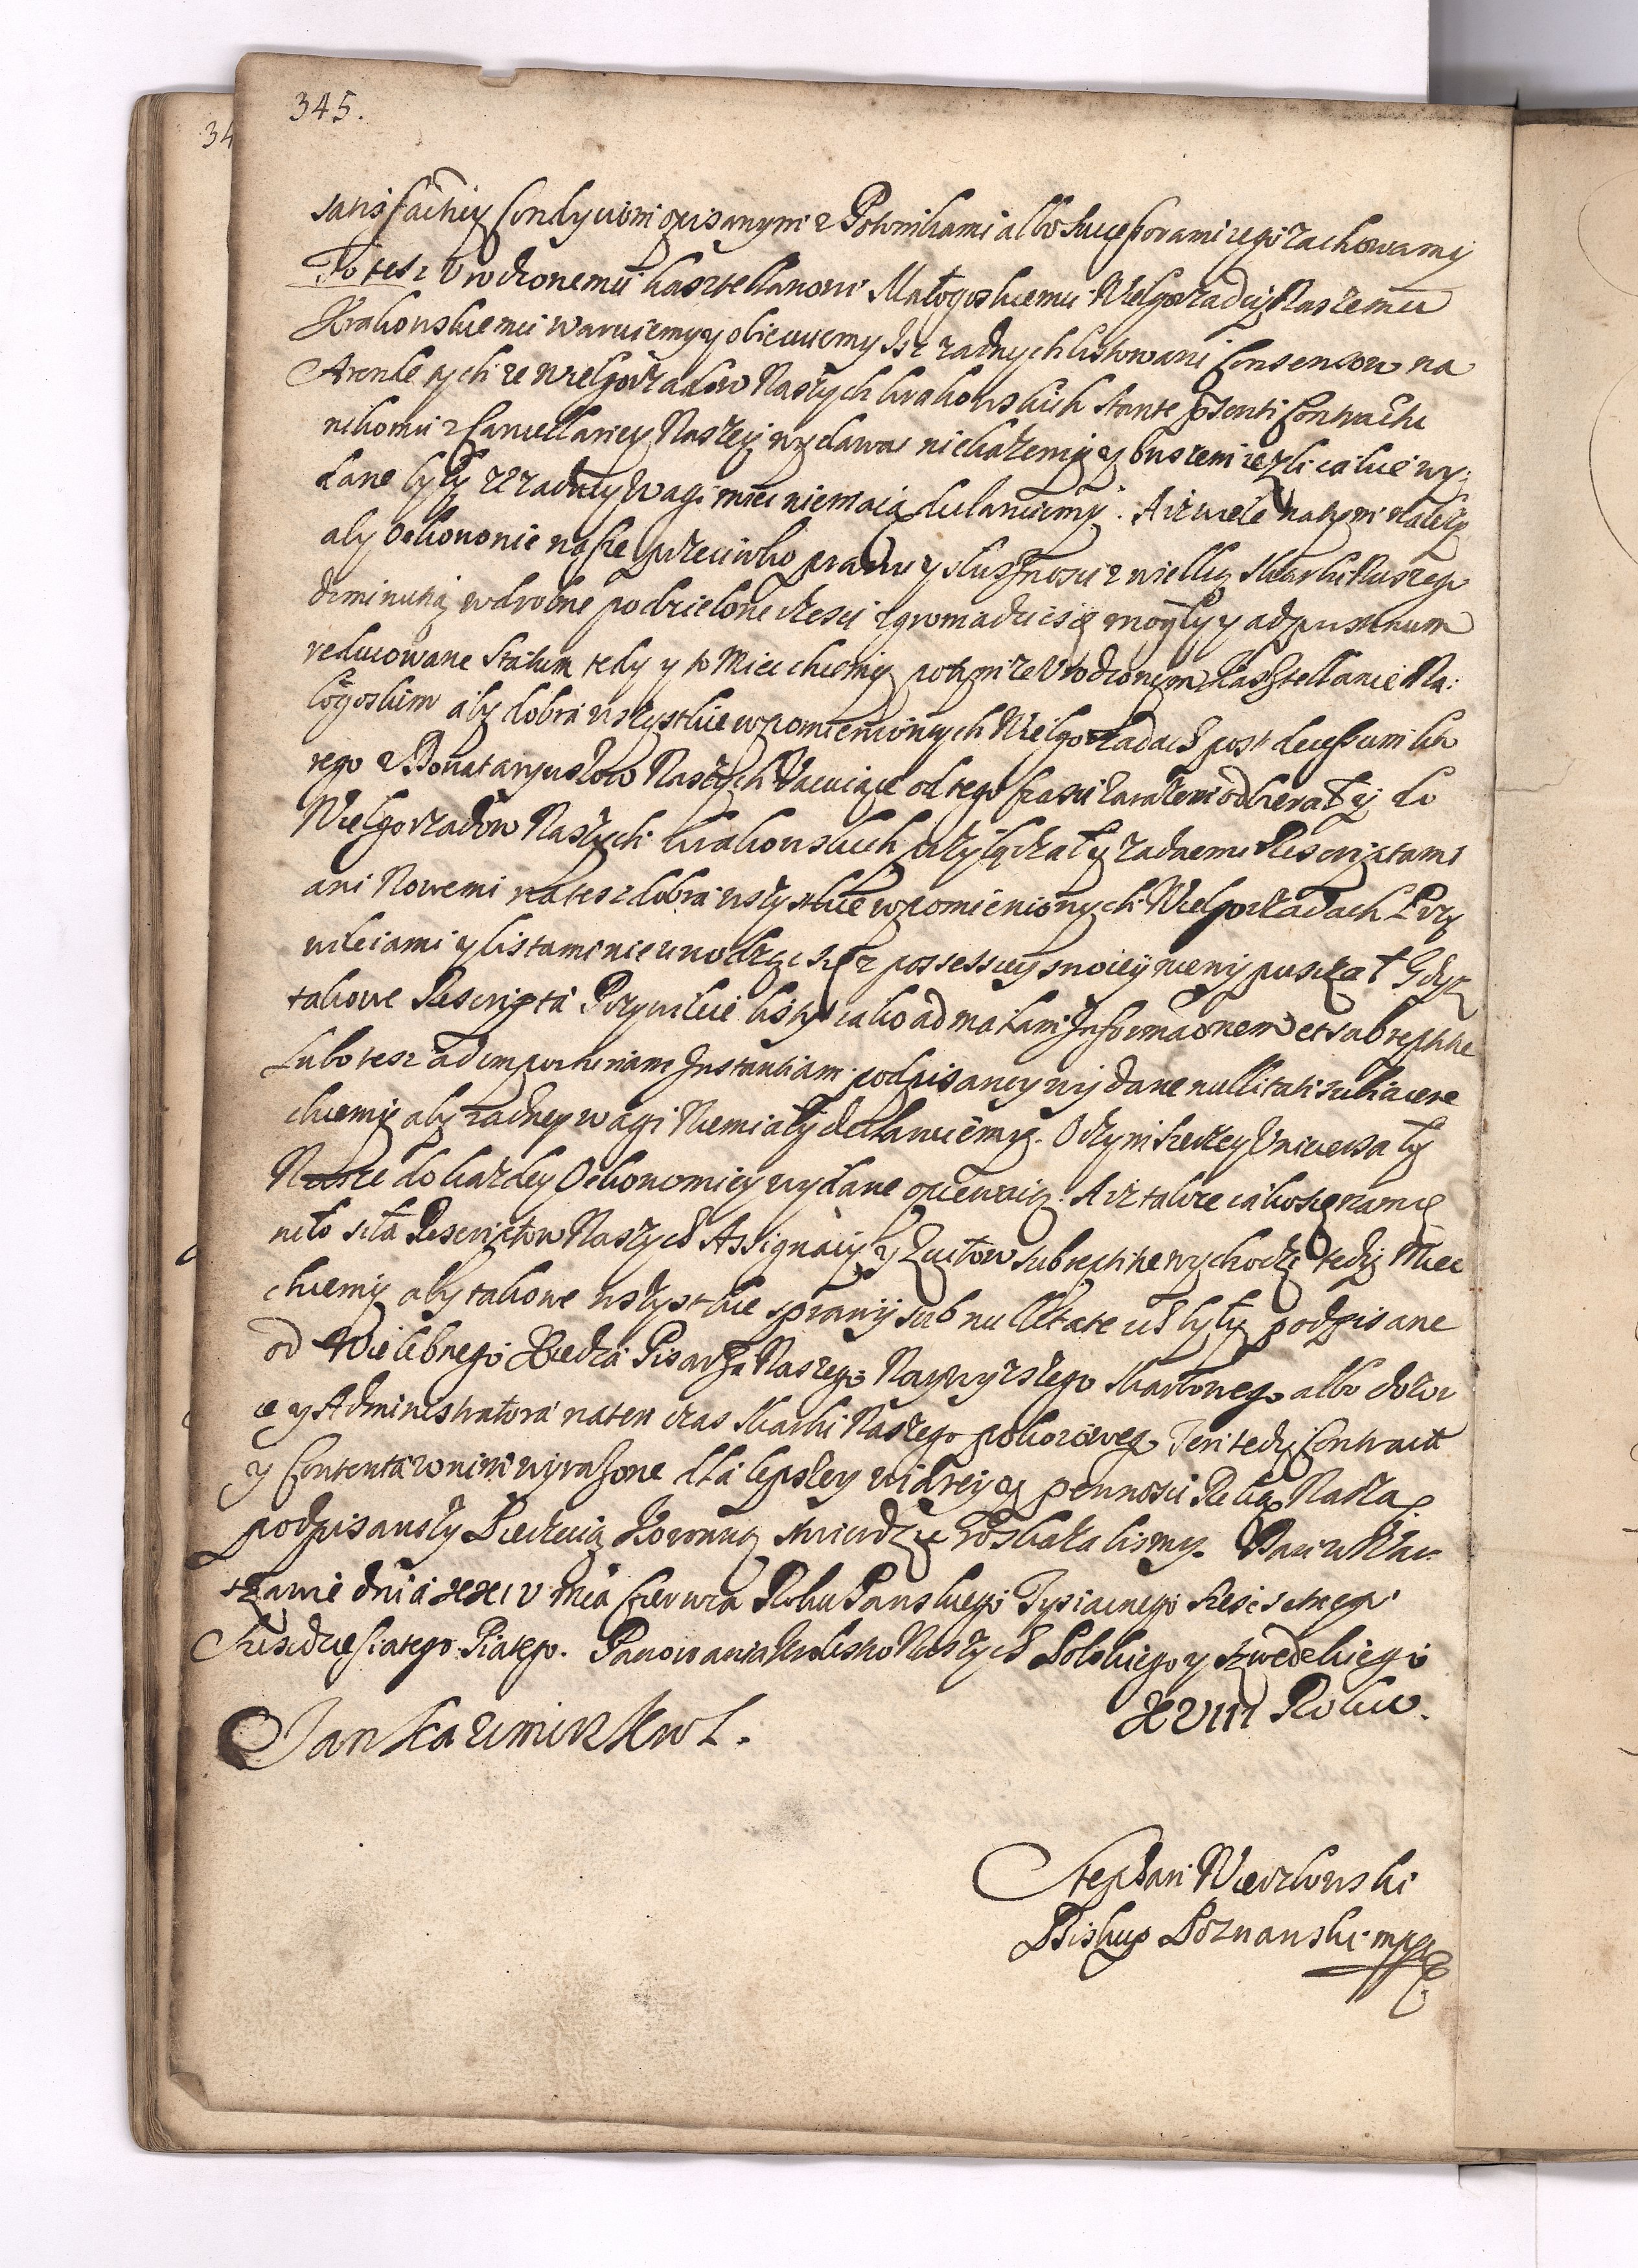 345.
satisfactiey Condyciom opisanym z Potomkami albo Successorami iego zachowamy
To tesz Urodzonemu kasztellanowi Małogoskiemu Wielgorządcy Naszemu
Krakowskiemu waruiemy y obiecuiemy Isz zadnych listow ani Consensow na
Arendę tychze Wielgorządow Naszych krakowskich stante pnti Contractu
nikomu z Cancellariey Naszey wydawac niekazemy y owszem iezli iakie wy:
dane były ze zadney wagi miec niemaią declaruiemy. A iz wiele natym nalezy
aby Oekonomie nasze przeciwko prawu y słusznosci z wielką Skarbu Naszego
diminutią w drobne podzielone częsci zgromadzic się mogły y ad pristinum
reducowane statum tedy y to Miec chcemy po tymze Urodzonym Kasztellanie Ma:
łogoskim aby dobra wszystkie w pomienionych Wielgorządach post decessum kto
rego z Donataryuszow Naszych Vacuiące od tego czasu zarazem odbierał y do
Wielgorządow Naszych krakowskich przyłączał y zadnemi Rescryptami
ani Nowemi na tesz dobra wszystkie w pomienionych Wielgorządach Przy
wileiami y listami nie uwodząc się z possessiey swoiey nie wypusczał Gdysz
takowe Rescripta Przywileie listy iako ad malam Informaonem et subreptitie
Lubo tesz ad importunam Instantiam podpisane y wydane nullitati subiacere
chcemy aby zadney wagi Niemiały declaruiemy. O czym szerzey Uniwersały
Nasze do kazdey Oekonomiey wydane opiewaią. A iz takze iakosmy namie
niło siła Rescriptow Naszych Assignacyi y Quitow subreptitie wychodzi tedy Miec
chcemy aby takowe wszystkie sprawy sub nullitate ich były podpisane
od Wielebnego Xiędza Pisarza Naszego Naywyzszego Skarbowego albo dozor
ce y Administratora naten czas Skarbu Naszego pokoiowego. Ten tedy Contract
y Contenta w nim wyrazone dla lepszey wiary y pewnosci Ręką Naszą
podpisawszy Pieczęcią Koronną stwierdzic rozkazalismy. Dan w War
szawie dnia XXIV Mca Czerwca Roku Panskiego Tysiącnego szescsetnego
Szescdziesiątego Piątego. Panowania Krolestw Naszych Polskiego y Szwedzkiego
XVIII Roku.
Jan Kazimierz Krol.
Stephan Wierzbowski
Biskup Poznanski mpp